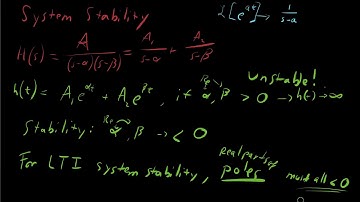 System Stability
ℒ[e^{αt}] → 1/(s-α)
H(s) = A/((s-α)(s-β)) = A₁/(s-α) + A₂/(s-β)
Unstable!
h(t) = A₁e^{αt} + A₂e^{βt}, if Re α, β > 0 → h(t) → ∞
Stability: Re α, β → < 0
For LTI system stability, real parts of poles must all < 0